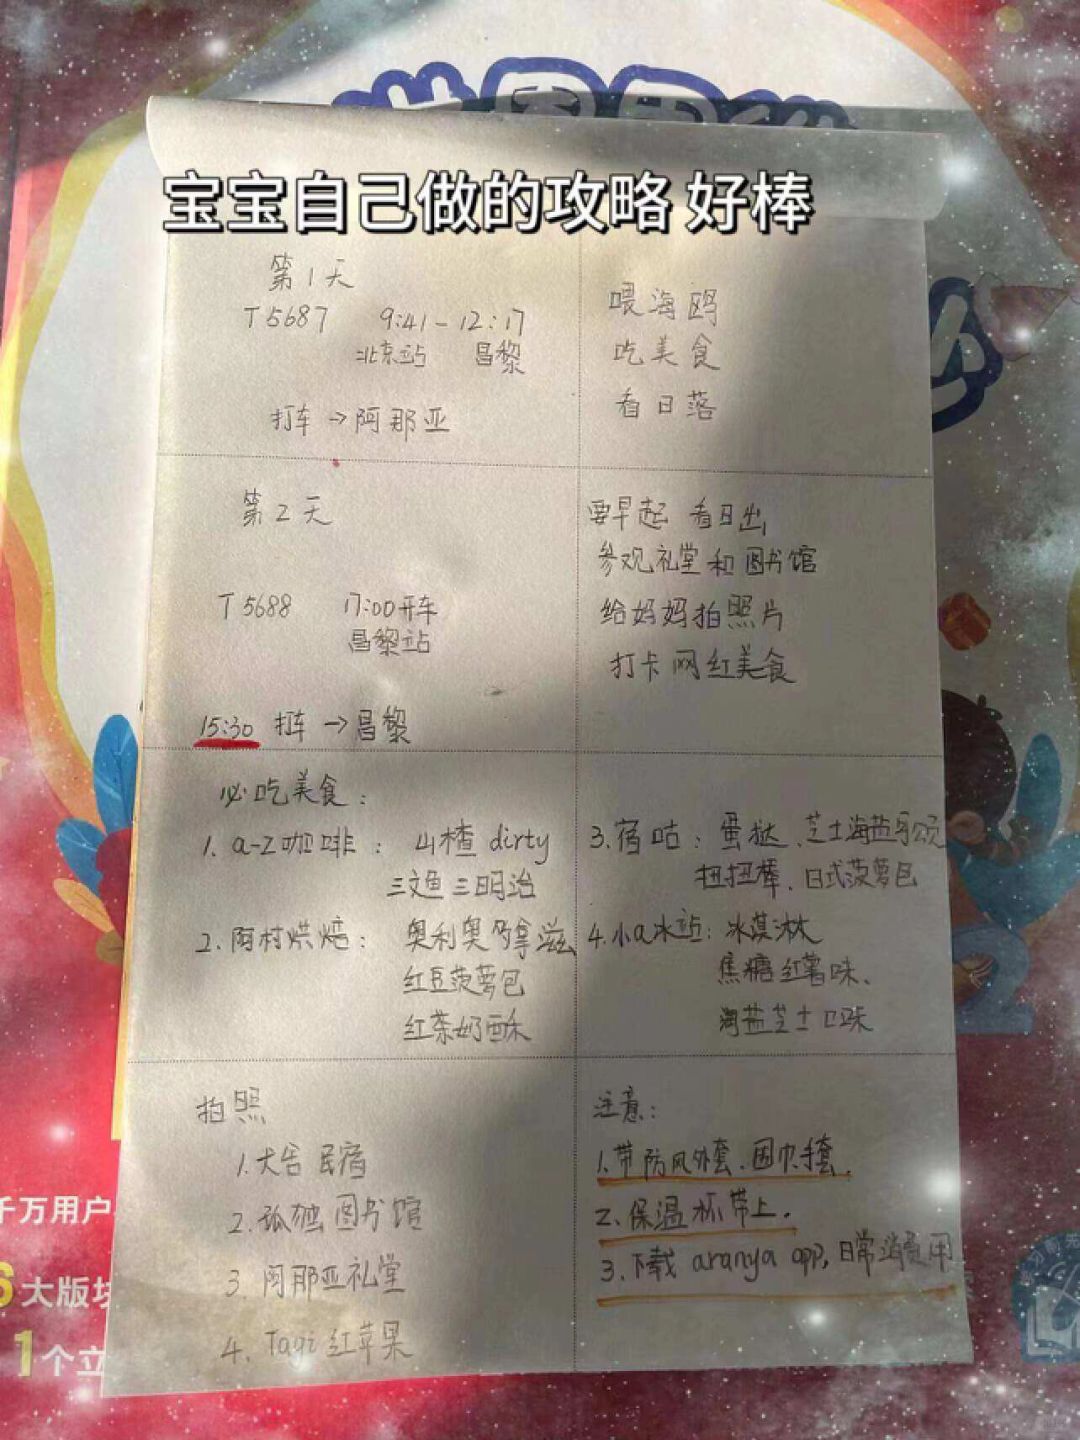 宝宝自己做的攻略 好棒
第1天
T5687 9:41-12:17
北京站 昌黎
打车→阿那亚
喂海鸥
吃美食
看日落
第2天
T5688 17:00开车
昌黎站
15:30 打车→昌黎
要早起 看日出
参观礼堂和图书馆
给妈妈拍照片
打卡网红美食
必吃美食:
1. a-z咖啡: 山楂dirty
三文鱼三明治
2. 阿村烘焙: 奥利奥多拿滋
红豆菠萝包
红茶奶酥
3. 宿咕: 蛋挞、芝士海盐可颂
扭扭棒、日式菠萝包
4. 小a冰站: 冰淇淋
焦糖红薯味、
海盐芝士口味
拍照
1. 大吉民宿
2. 孤独图书馆
3. 阿那亚礼堂
4. Tagi红苹果
注意:
1. 带防风外套、围巾手套.
2. 保温杯带上.
3. 下载aranya app, 日常消费用
千万用户
6大版块
1个立